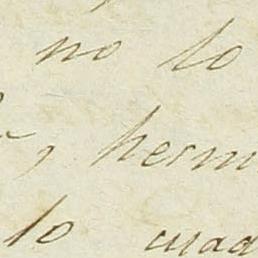 no lo
, herm
lo cuad